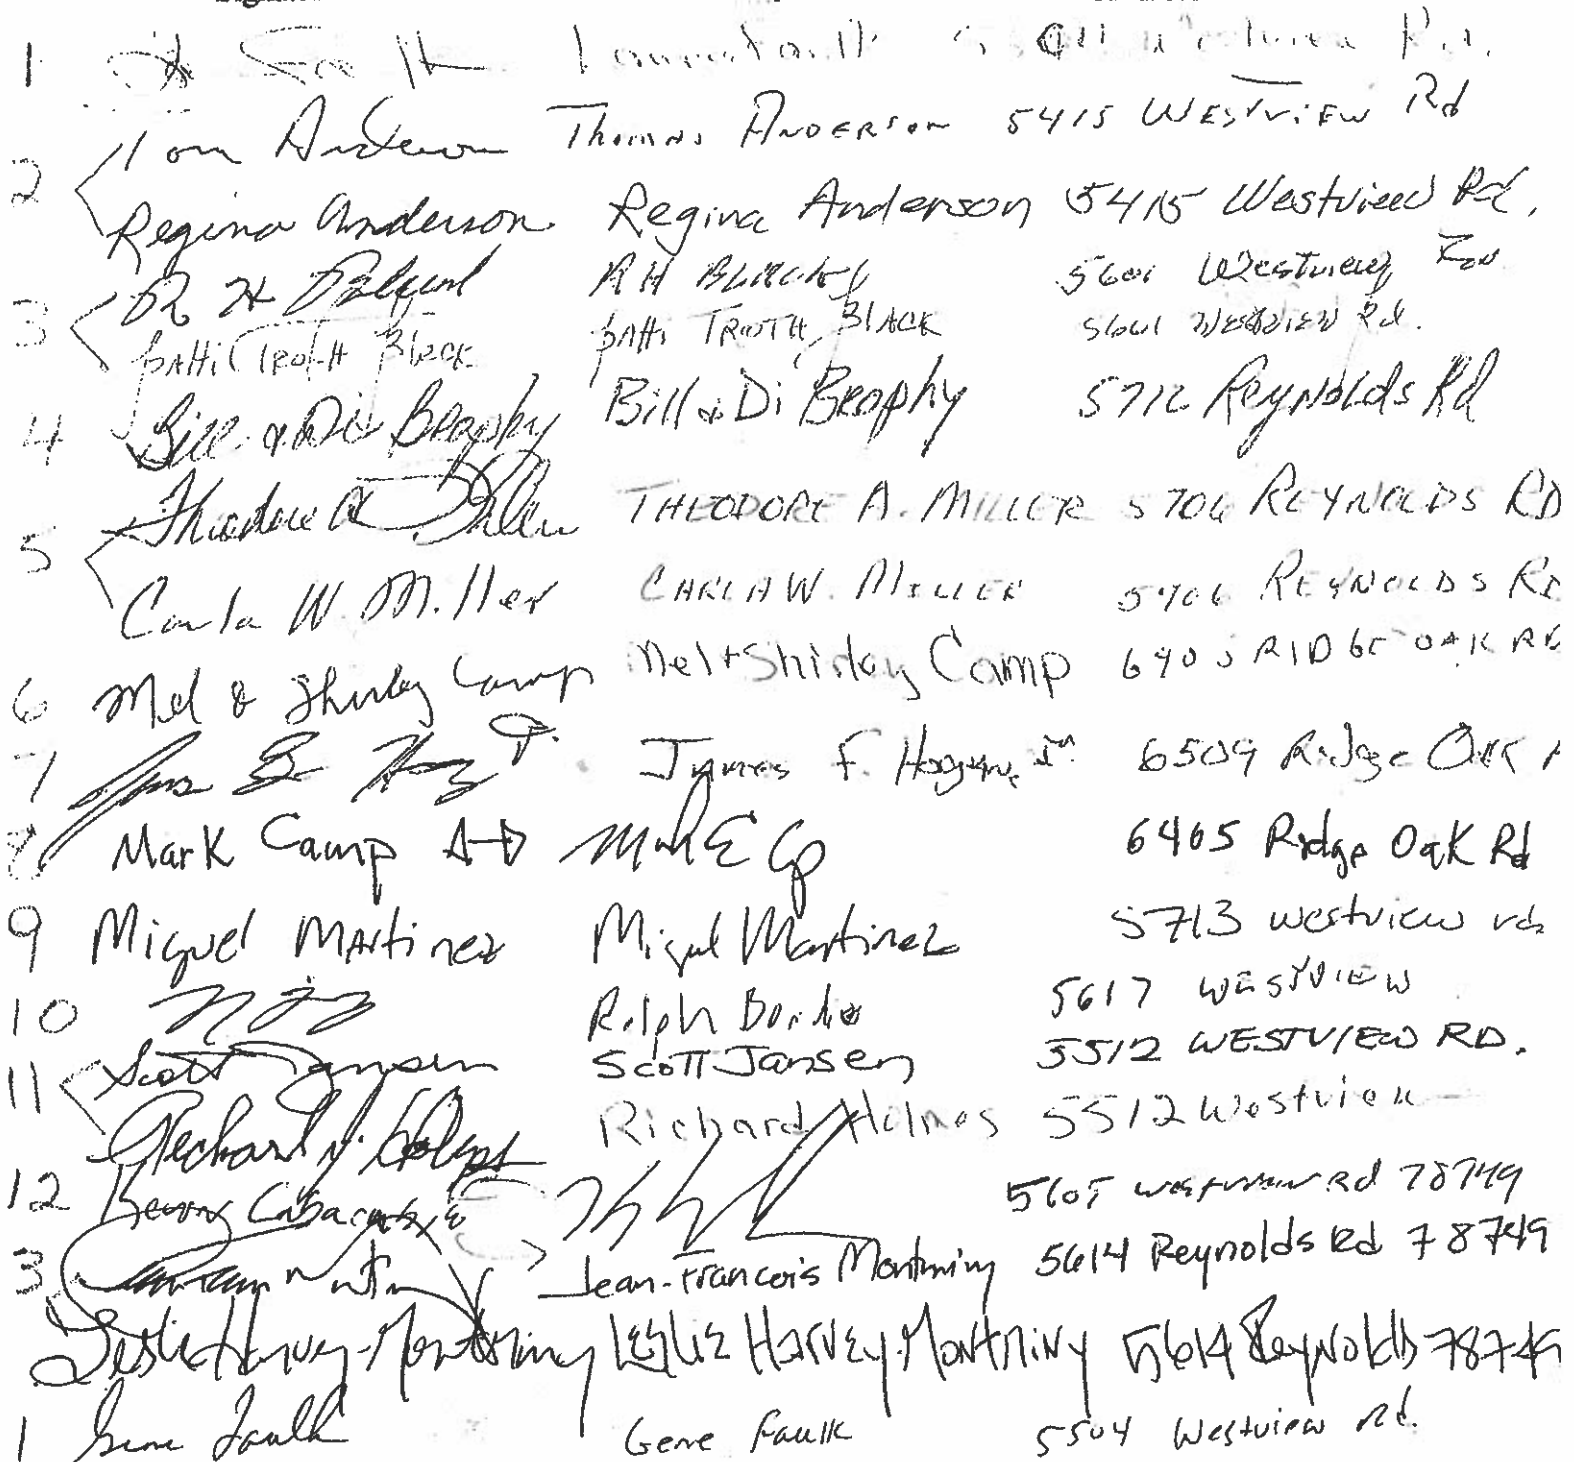 1 Faulk Rd.
Tom Anderson Thomas ANDERSON 5415 WESTVIEW Rd
2
Regina Anderson Regina Anderson 5415 Westview Rd.
R H R H BLACK 5601 Westview
3
pAtti TROTH Black pAtti TROTH BLACK 5601 WESTVIEW Rd.
4 Bill & Di Brophy Bill & Di Brophy 5712 Reynolds Rd
Theodore A Miller THEODORE A. MILLER 5706 REYNOLDS RD
5
Carla W. Miller CARLA W. MILLER 5706 REYNOLDS RD
6 Mel & Shirley Camp Mel + Shirley Camp RIDGE OAK RD
7 James F. 6509 Ridge Oak
8 Mark Camp 6405 Ridge Oak Rd
9 Miguel MArtinez Miguel Martinez 5713 westview rd
10 Ralph 5617 WESTVIEW
11 Scott Jansen Scott Jansen 5512 WESTVIEW RD.
Richard Holmes Richard Holmes 5512 Westview
12 5605 westview Rd 78749
3 Jean-Francois Montminy 5614 Reynolds Rd 78749
Leslie Harvey-Montminy LESLIE HARVEY-MONTMINY 5614 Reynolds 78749
1 Gene Faulk Gene Faulk 5504 Westview Rd.